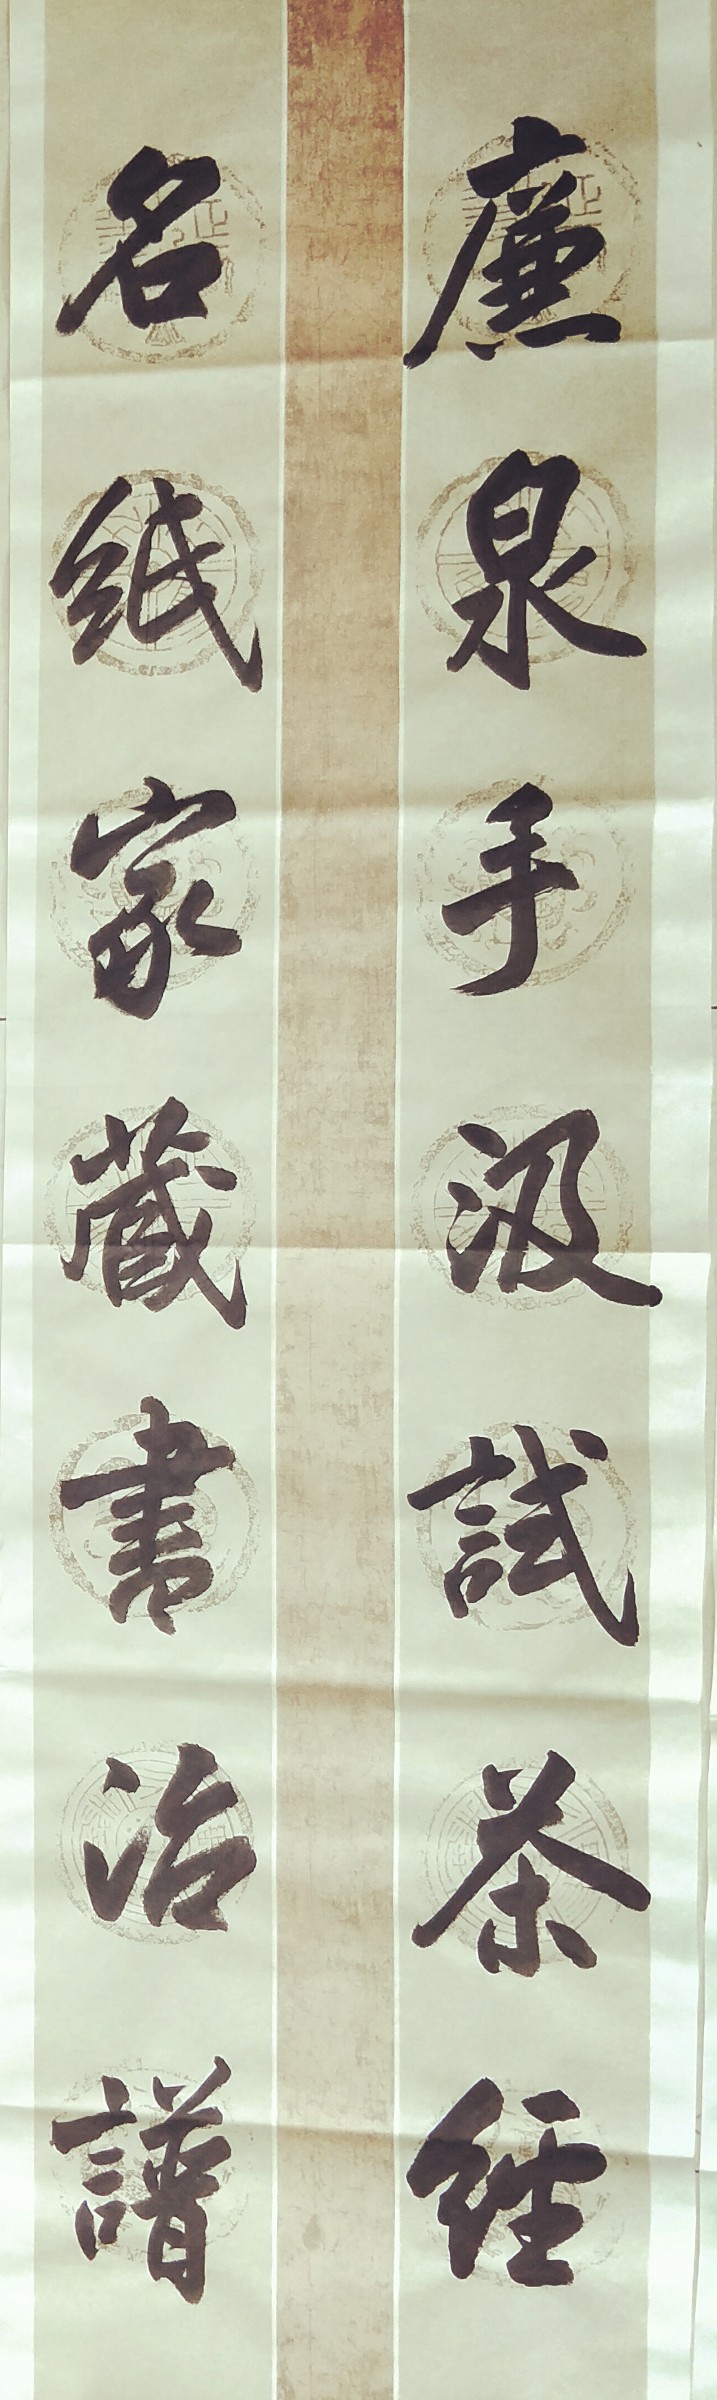 廉泉手汲試茶經
名紙家藏書治譜